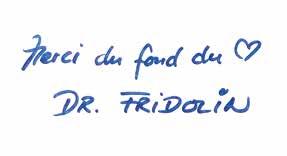 Merci du fond du ♡
DR. FRIDOLIN